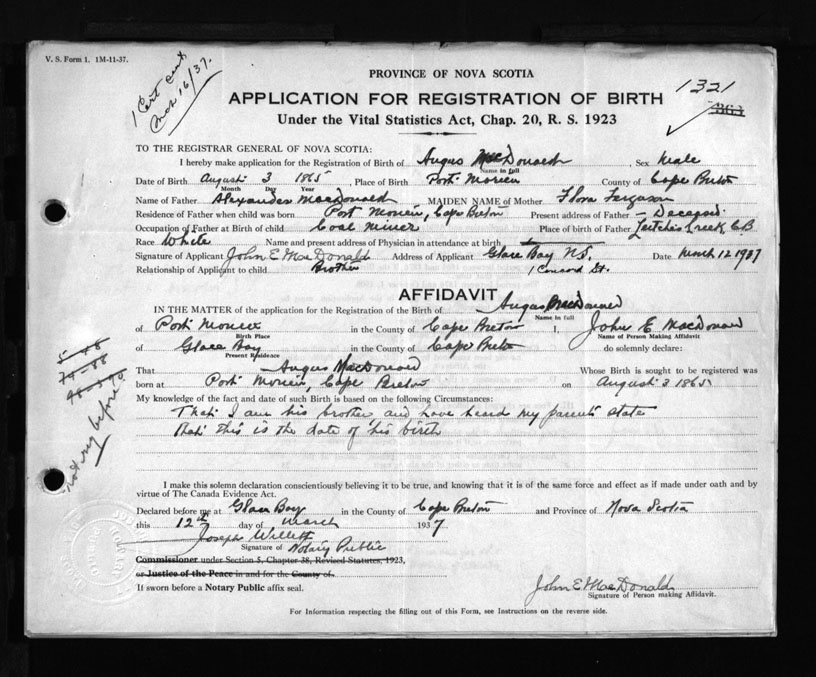 V. S. Form 1. 1M-11-37.
1 Cert sent
Mar 16/37.
PROVINCE OF NOVA SCOTIA
1321
APPLICATION FOR REGISTRATION OF BIRTH
Under the Vital Statistics Act, Chap. 20, R. S. 1923
TO THE REGISTRAR GENERAL OF NOVA SCOTIA:
I hereby make application for the Registration of Birth of Angus MacDonald, Sex Male
Name in full
Date of Birth August 3 1865, Place of Birth Port Morien County of Cape Breton
Month Day Year
Name of Father Alexander MacDonald MAIDEN NAME of Mother Flora Ferguson
Residence of Father when child was born Port Morien, Cape Breton Present address of Father – Deceased.
Occupation of Father at Birth of child Coal miner Place of birth of Father Leitches Creek, C.B
Race White Name and present address of Physician in attendance at birth
Signature of Applicant John E MacDonald Address of Applicant Glace Bay N.S. Date March 12 1937
Relationship of Applicant to child Brother 1 Concord St.
AFFIDAVIT
IN THE MATTER of the application for the Registration of the Birth of Angus MacDonald
Name in full
of Port Morien in the County of Cape Breton I, John E. MacDonald
Birth Place Name of Person Making Affidavit
of Glace Bay in the County of Cape Breton do solemnly declare:
Present Residence
That Angus MacDonald Whose Birth is sought to be registered was
born at Port Morien, Cape Breton on August 3 1865
My knowledge of the fact and date of such Birth is based on the following Circumstances:
That I am his brother and have heard my parents state
that this is the date of his birth
not reg before
I make this solemn declaration conscientiously believing it to be true, and knowing that it is of the same force and effect as if made under oath and by
virtue of The Canada Evidence Act.
Declared before me at Glace Bay in the County of Cape Breton and Province of Nova Scotia
this 12th day of March 1937
Joseph Willett
Signature of Notary Public
Commissioner under Section 5, Chapter 38, Revised Statutes, 1923,
or Justice of the Peace in and for the County of
If sworn before a Notary Public affix seal.
John E MacDonald
Signature of Person making Affidavit.
For Information respecting the filling out of this Form, see Instructions on the reverse side.